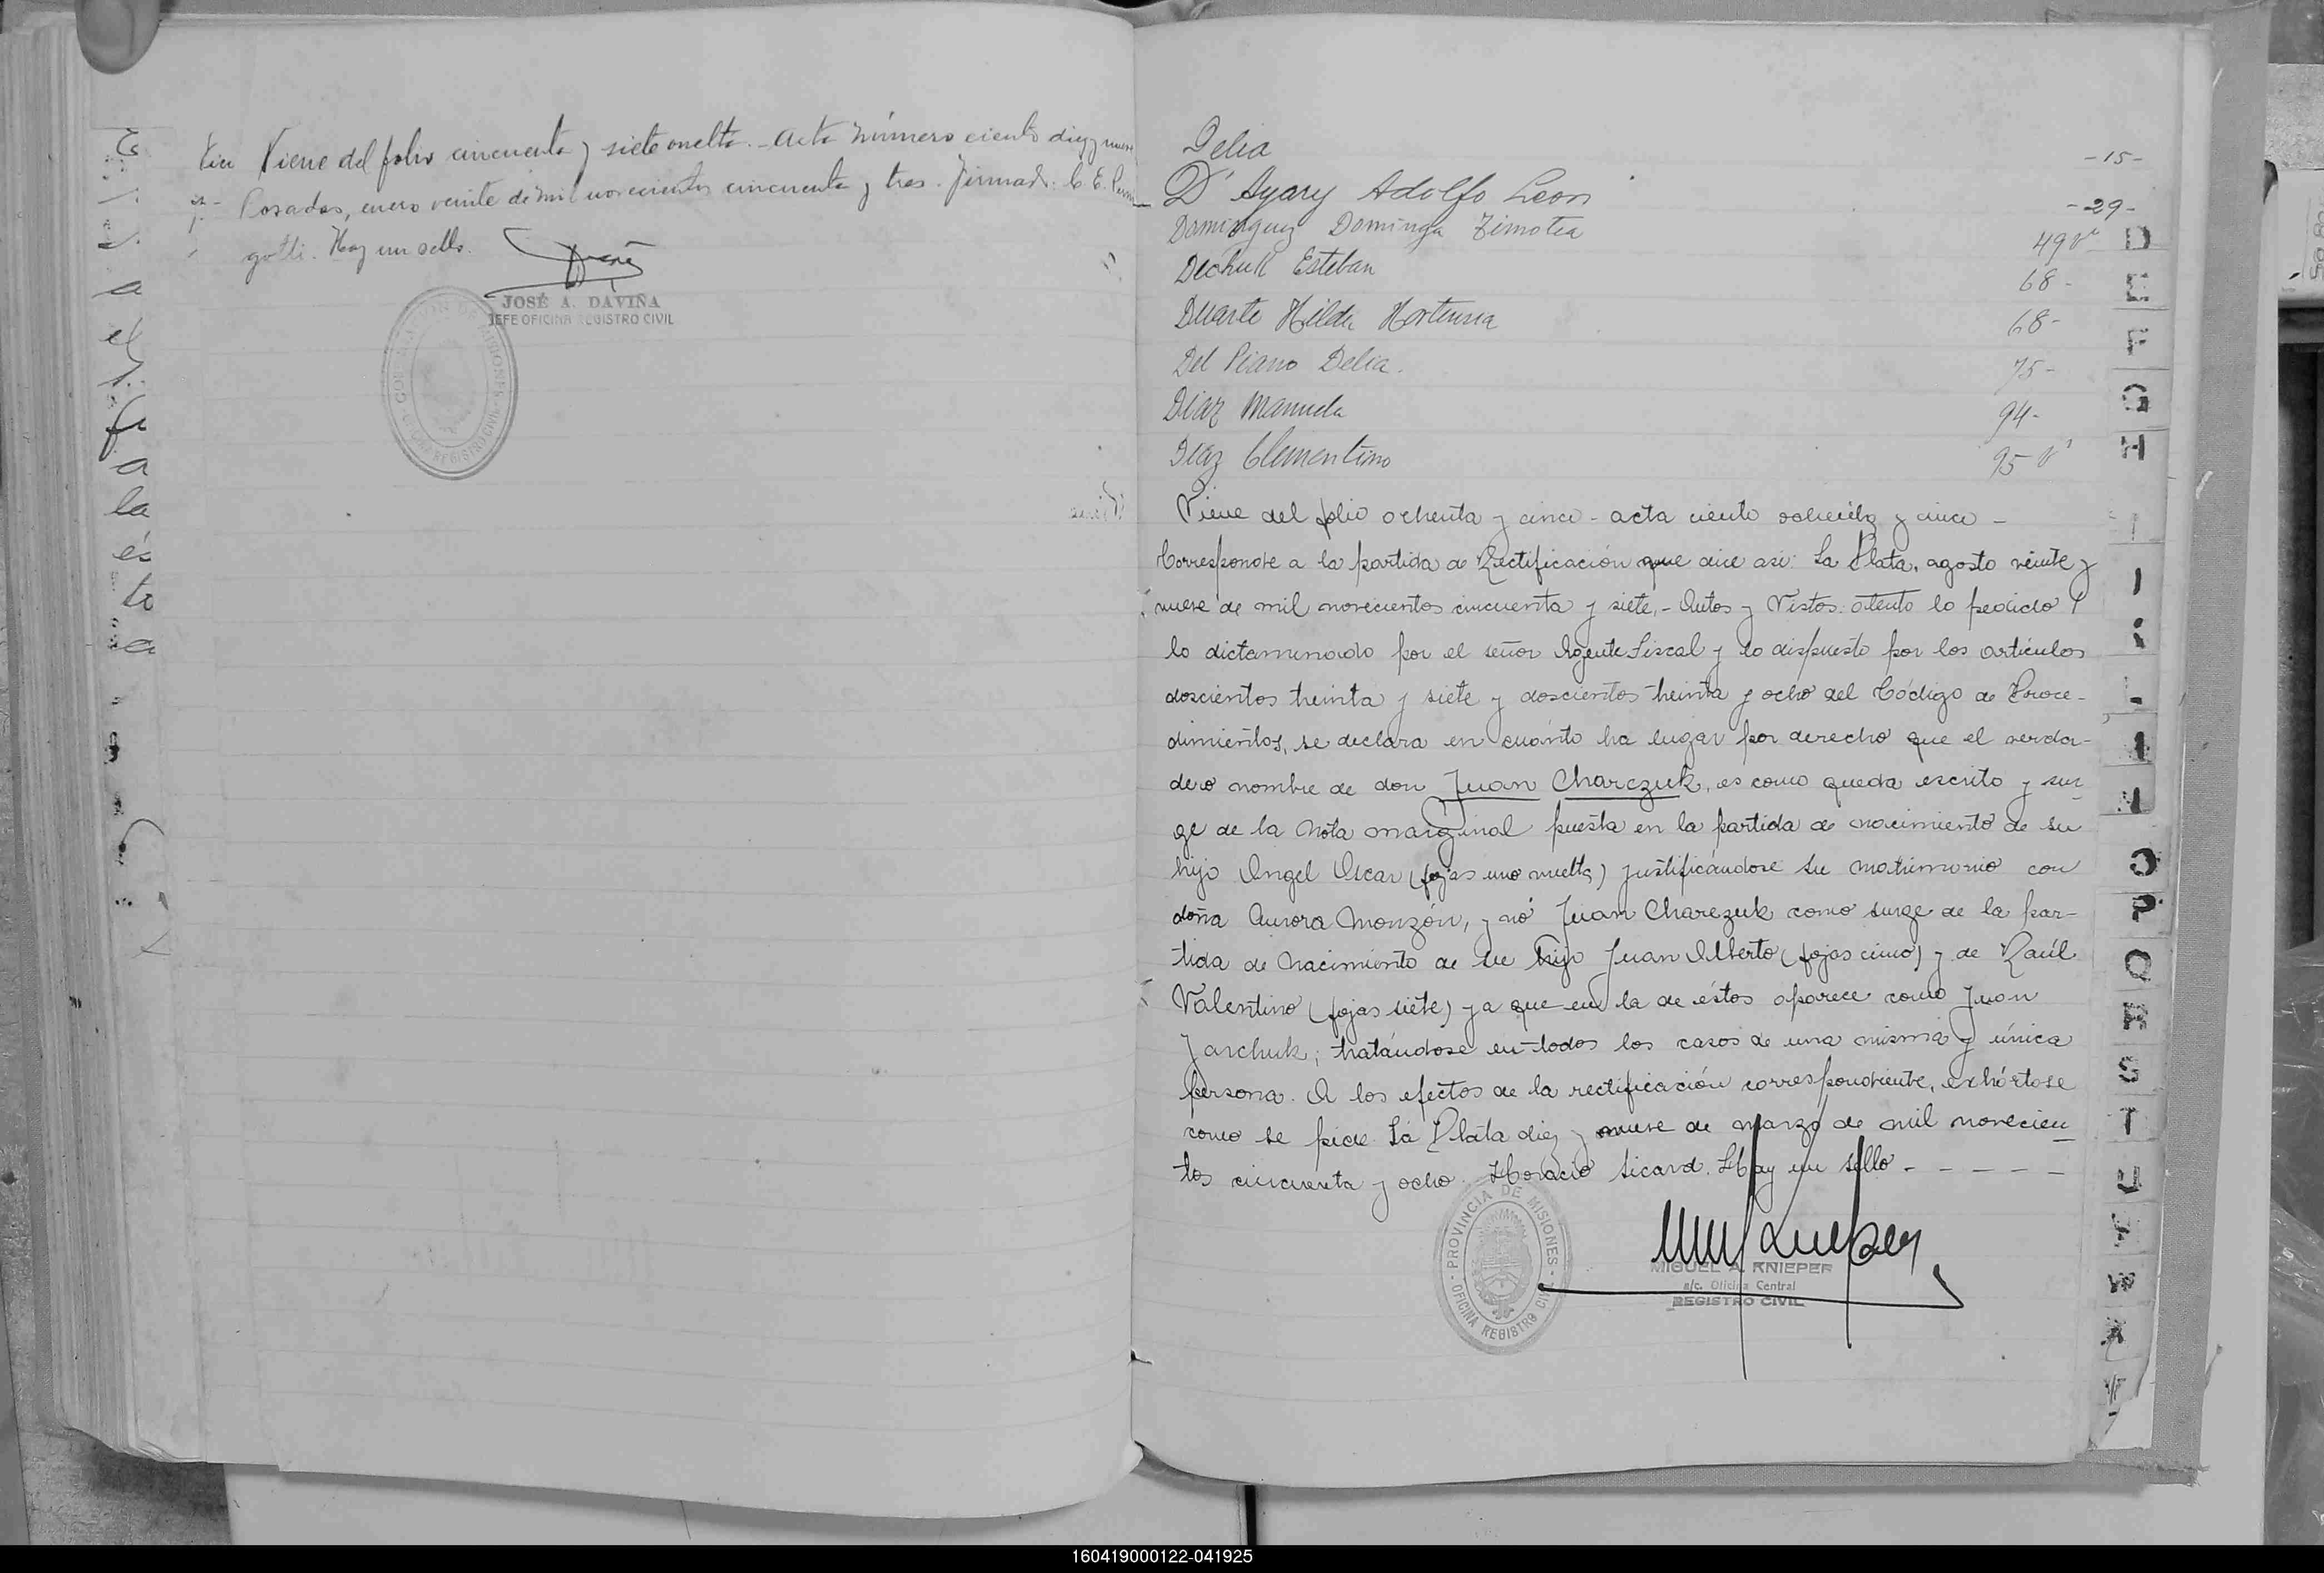 Viene del folio cincuenta y siete vuelta. - Acta número ciento diez y nueve
Posadas, enero veinte de mil novecientos cincuenta y tres. Firmado: C. E.
gotti. Hay un sello.
JOSÉ A. DAVIÑA
JEFE OFICINA REGISTRO CIVIL
Delia -15-
D' Ayary Adolfo Leon -29-
Dominguez Dominga Timotea 49 vº
Dechuk Esteban 68-
Duarte Hilda Hortensia 68-
Del Piano Delia. 75-
Diaz Manuela 94-
Diaz Clementino 95 vº
Viene del folio ochenta y cinco - acta ciento ochenta y cinco -
Corresponde a la partida de Rectificación que dice así: La Plata, agosto veinte y
nueve de mil novecientos cincuenta y siete,- Autos y Vistos: atento lo pedido y
lo dictaminado por el señor Agente Fiscal y lo dispuesto por los artículos
doscientos treinta y siete y doscientos treinta y ocho del Código de Proce-
dimientos, se declara en cuánto ha lugar por derecho que el verda-
dero nombre de don Juan Charczuk, es como queda escrito y sur-
ge de la nota marginal puesta en la partida de nacimiento de su
hijo Angel Oscar (fojas uno vuelta) justificándose su matrimonio con
doña Aurora Monzón, y nó Juan Charezuk como surge de la par-
tida de nacimiento de su hijo Juan Alberto (fojas cinco) y de Raúl
Valentino (fojas siete) ya que en la de éstos aparece como Juan
Jarchuk; tratándose en todos los casos de una misma y única
persona. A los efectos de la rectificación correspondiente, exhórtese
como se pide. La Plata diez y nueve de marzo de mil novecien-
tos cincuenta y ocho. Horacio Sicard. Hay un sello - - - - -
PROVINCIA DE MISIONES
OFICINA REGISTRO CIVIL
MIGUEL A. KNIEPER
a/c. Oficina Central
REGISTRO CIVIL
D
E
F
G
H
I
L
N
O
P
Q
R
S
T
U
W
160419000122-041925